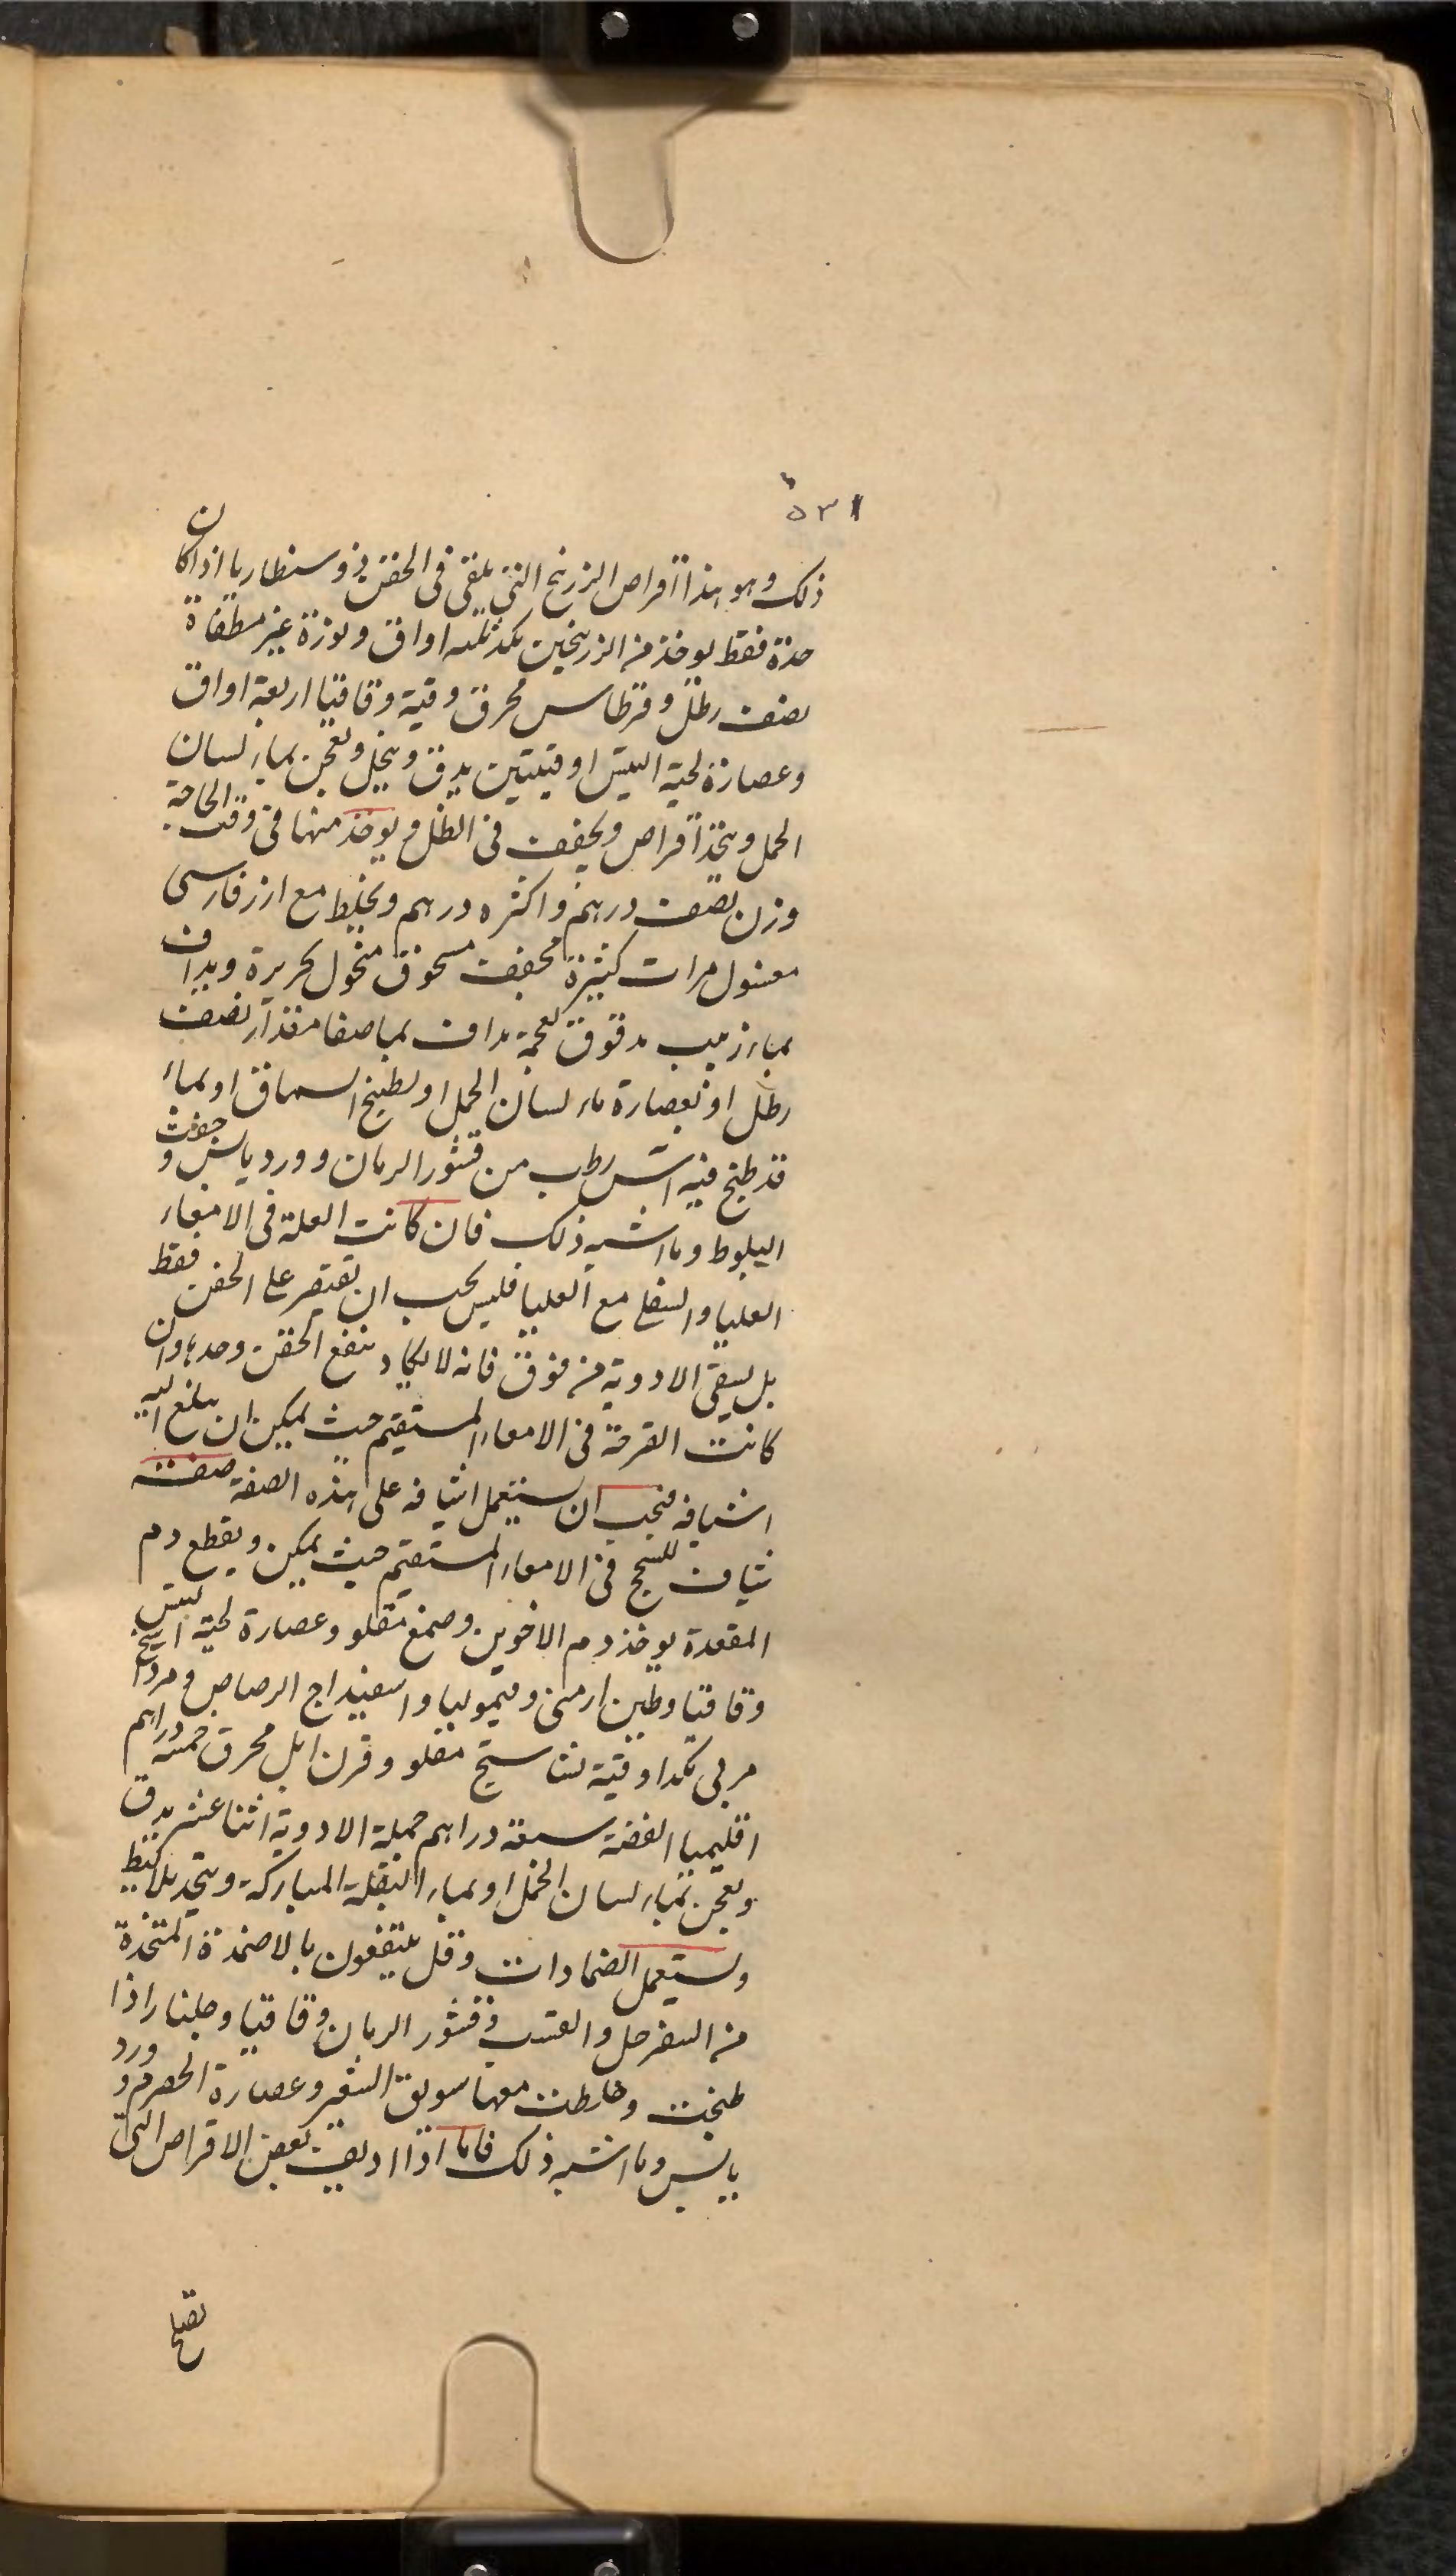 ٥٣١
ذلك وهو هذا اقراص الزرنيخ التي يلقى في الحقن ذوسنطاريا اذا كان
حدة فقط يوخذ من الزرنيخين بكد ثلثه اواق ونورة غير مطفاة
نصف رطل وقرطاس محرق وقية وقاقيا اربعة اواق
وعصارة لحية التيس اوقيتين يدق وينخل ويعجن بماء لسان
الحمل ويتخذ اقراص ويجفف في الظل ويوخذ منها في وقت الحاجة
وزن نصف درهم واكثره درهم ويخلط مع ارز فارسى
مغسول مرات كثيرة مجفف مسحوق منخول بحريرة ويداف
بماء زبيب مدقوق بعجمه مداف بما صفا مقدار نصف
رطل او بعصارة ماء لسان الحمل او بطبيخ السماق او بماء
قد طبخ فيه اس رطب من قشور الرمان وورد يابس وجفت
البلوط وما اشبه ذلك فان كانت العلة في الامعاء
العليا والسفلى مع العليا فليس يجب ان يقتصر على الحقن فقط
بل يسقى الادوية من فوق فانه لا يكاد ينفع الحقن وحدها وان
كانت القرحة في الامعاء المستقيم حيث يمكن ان يبلغ اليه
اشيافه فيجب ان يستعمل اشيافه على هذه الصفة صفة
شياف للسحج في الامعاء المستقيم حيث يمكن ويقطع دم
المقعدة يوخذ دم الاخوين وصمغ مقلو وعصارة لحية التيس
وقاقيا وطين ارمنى وقيموليا واسفيداج الرصاص ومرداسنج
مربى بكد اوقية نشاستج مقلو وقرن ايل محرق خمسة دراهم
اقليميا الفضة سبعة دراهم جملة الادوية اثنا عشر يدق
ويعجن بماء لسان الحمل او بماء البقلة المباركة ويتخذ بلاليط
ويستعمل الضمادات وقل ينتفعون بالاضمدة المتخذة
من السفرجل والقسب وقشور الرمان وقاقيا وجلنار اذا
طبخت وخلطت معها سويق الشعير وعصارة الحصرم وورد
يابس وما اشبه ذلك فاما اذا اديف بعض الاقراص التي